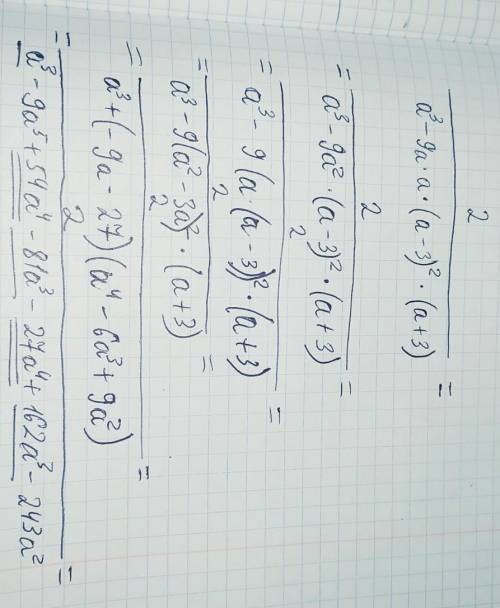 2
a³ - 9a·a·(a-3)²·(a+3) =
2
= a³ - 9a²·(a-3)²·(a+3) =
2
= a³ - 9(a·(a-3))²·(a+3) =
2
= a³ - 9(a² - 3a)²·(a+3) =
2
= a³ + (-9a - 27)(a⁴ - 6a³ + 9a²) =
2
= a³ - 9a⁵ + 54a⁴ - 81a³ - 27a⁴ + 162a³ - 243a² =